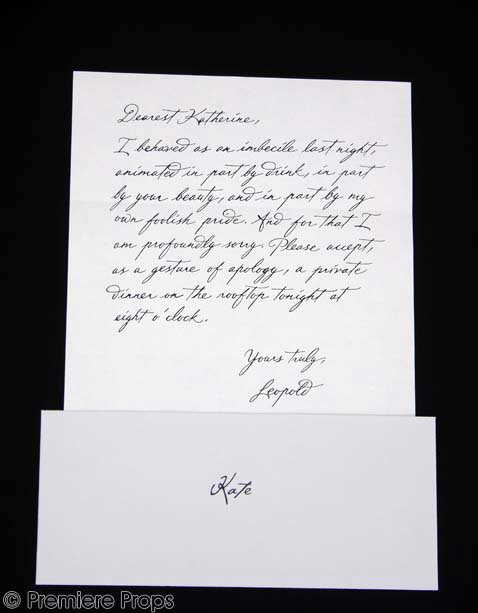 Dearest Katherine,
I behaved as an imbecile last night,
animated in part by drink, in part
by your beauty, and in part by my
own foolish pride. And for that I
am profoundly sorry. Please accept,
as a gesture of apology, a private
dinner on the rooftop tonight at
eight o'clock.
Yours truly,
Leopold
Kate
© Premiere Props